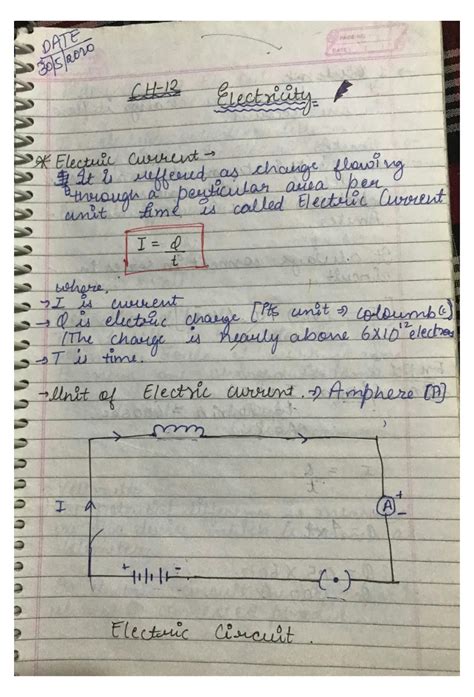 DATE
30/5/2020
PAGE NO.
DATE:
CH-12 Electricity
* Electric Current →
It is reffered as charge flowing
through a perticular area per
unit time is called Electric Current
I = Q
t
where,
→ I is current
→ Q is electric charge [Its unit ⇒ coloumb(c)
(The charge is nearly above 6X10¹² electrons
→ T is time.
→ Unit of Electric current. ⇒ Amphere [A]
I
A
+
-
+ -
(•)
Electric Circuit.